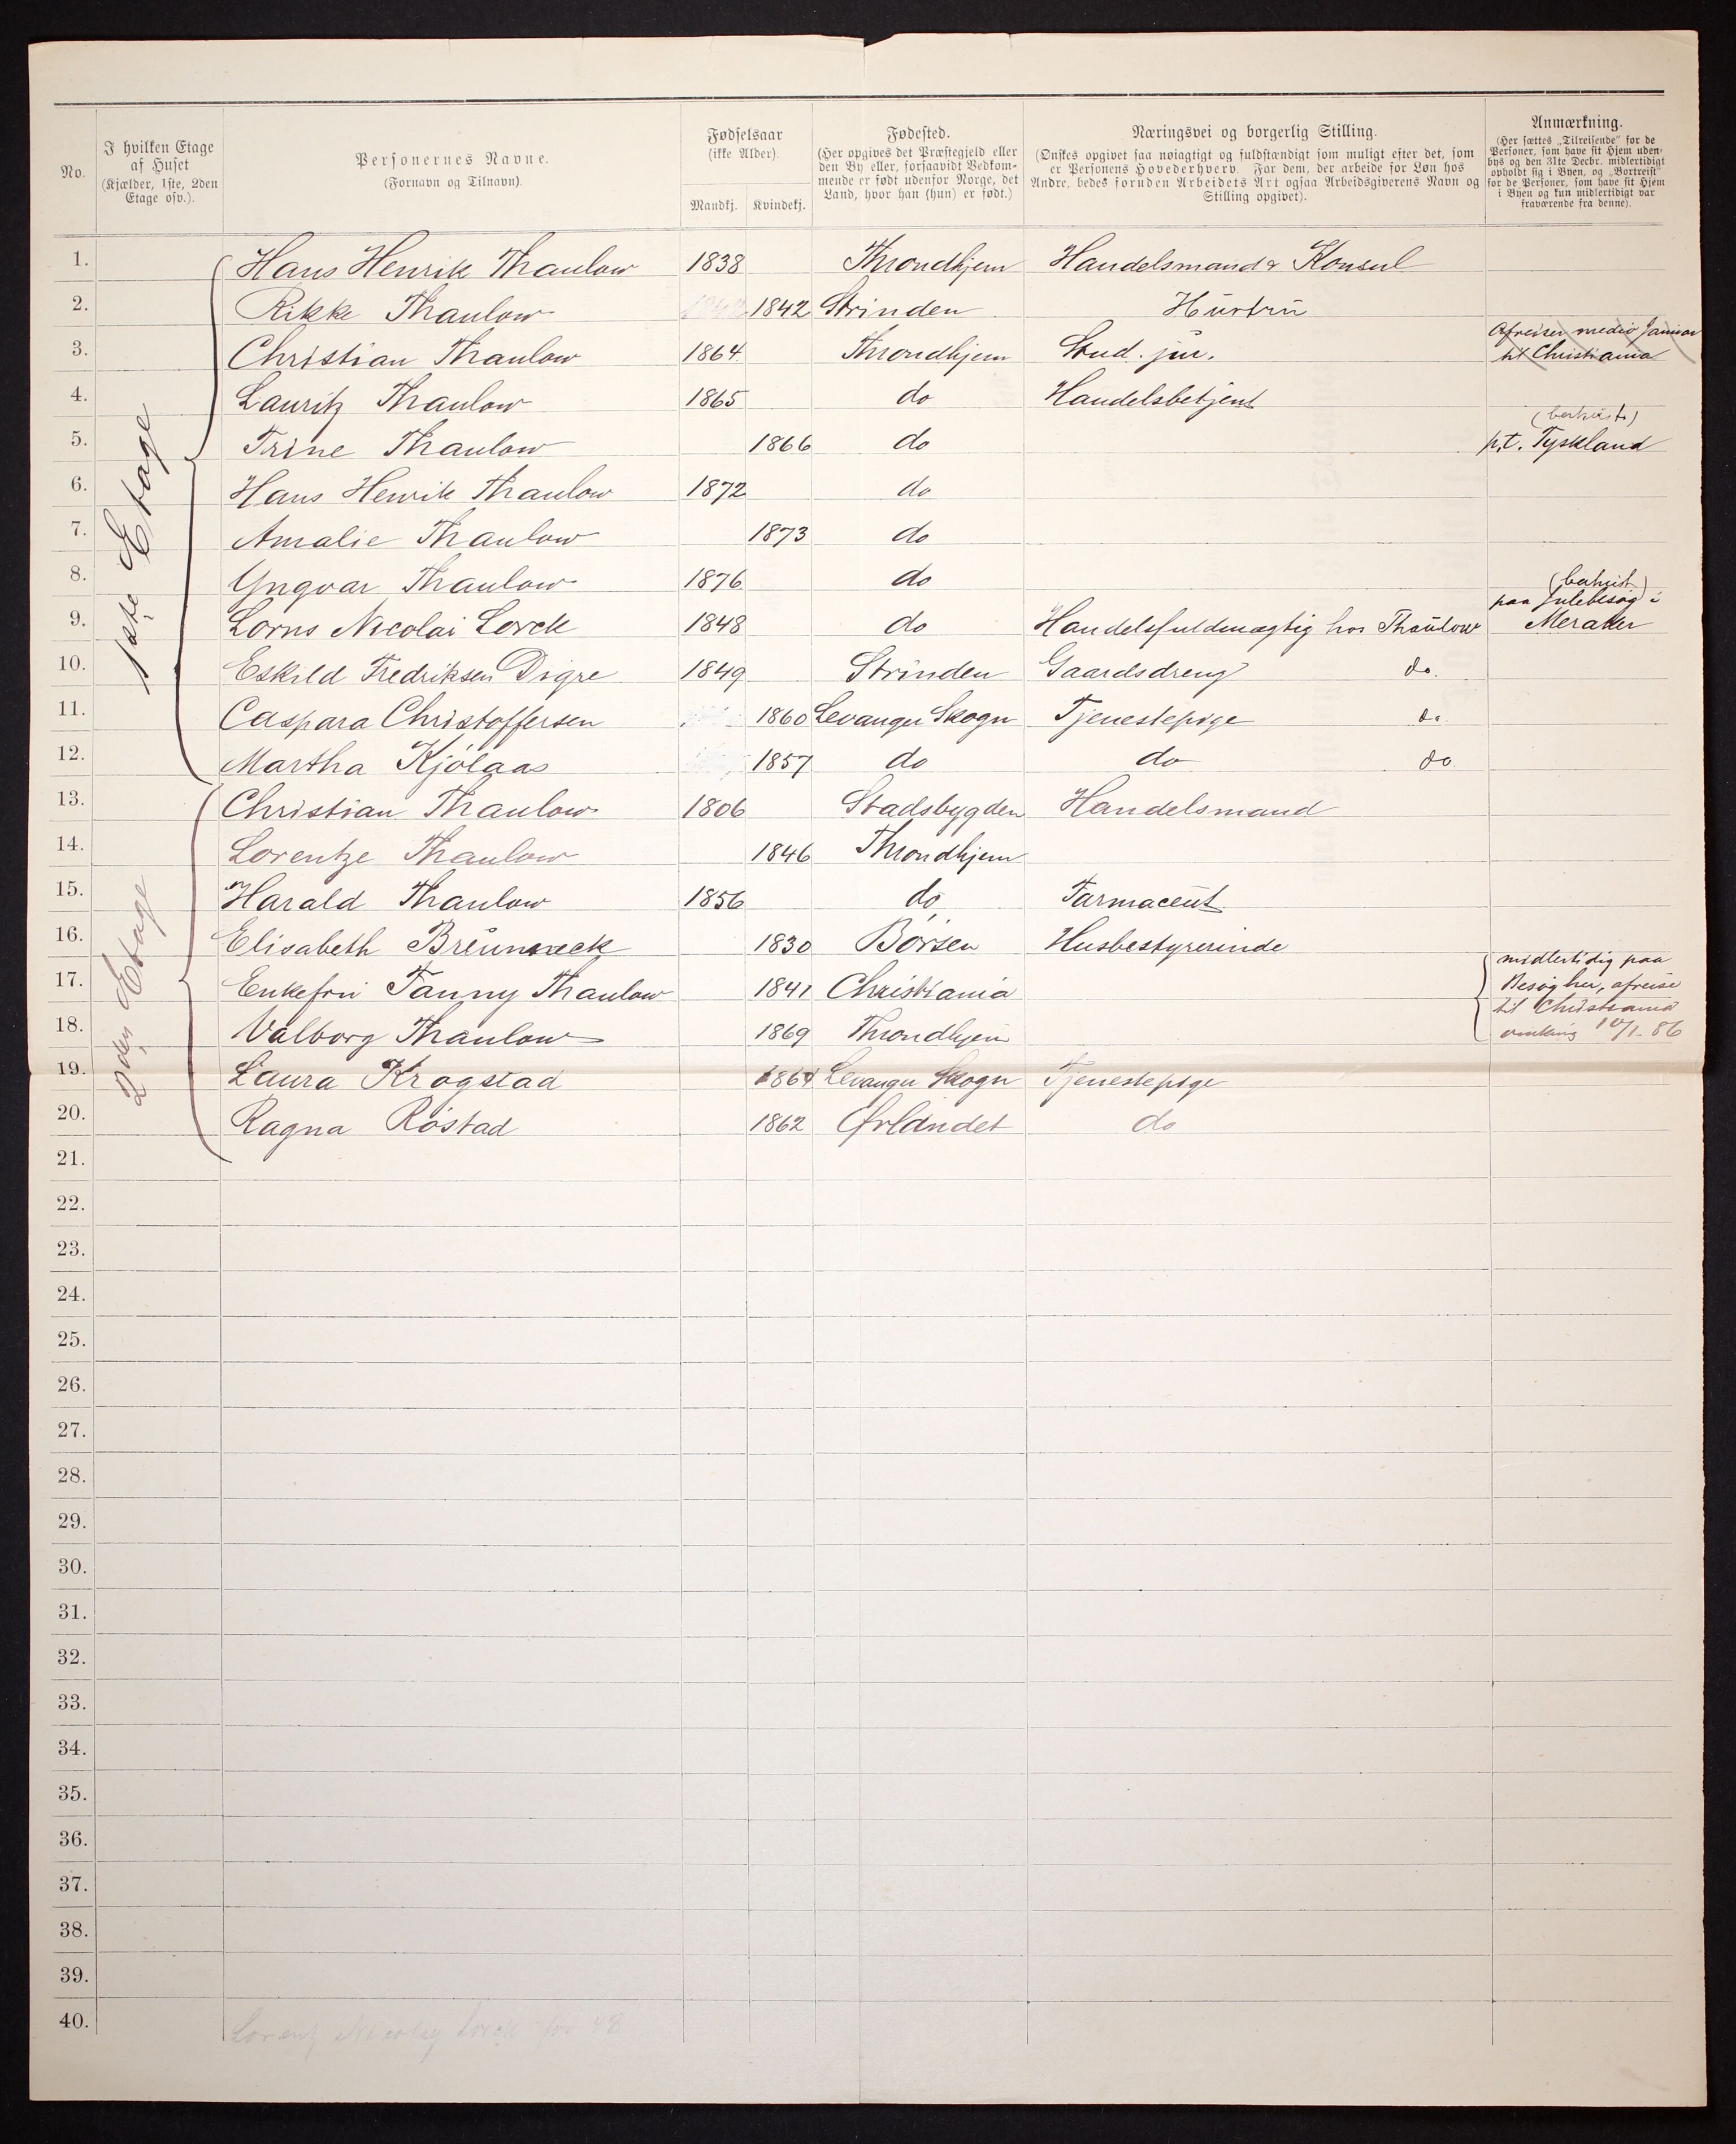 No.
I hvilken Etage
af Huset
(Kjælder, 1ste, 2den
Etage osv.).
Personernes Navne.
(Fornavn og Tilnavn).
Fødselsaar
(ikke Alder).
Mandkj. Kvindekj.
Fødested.
(Her opgives det Præstegjeld eller
den By eller, forsaavidt Vedkom-
mende er født udenfor Norge, det
Land, hvor han (hun) er født.)
Næringsvei og borgerlig Stilling.
(Ønskes opgivet saa nøiagtigt og fuldstændigt som muligt efter det, som
er Personens Hovederhverv. For dem, der arbeide for Løn hos
Andre, bedes foruden Arbeidets Art ogsaa Arbeidsgiverens Navn og
Stilling opgivet).
Anmærkning.
(Her sættes „Tilreisende" for de
Personer, som have sit Hjem uden-
bys og den 31te Decbr. midlertidigt
opholdt sig i Byen, og „Bortreist"
for de Personer, som have sit Hjem
i Byen og kun midlertidigt var
fraværende fra denne).
1ste Etage
1. Hans Henrik Thaulow 1838 Throndhjem Handelsmand & Konsul
2. Rikke Thaulow 1842 Strinden Hustru
3. Christian Thaulow 1864 Throndhjem Stud. jur. Afreiser medio Januar
til Christiania
4. Lauritz Thaulow 1865 do Handelsbetjent
5. Trine Thaulow 1866 do p.t. Tyskland
6. Hans Henrik Thaulow 1872 do
7. Amalie Thaulow 1873 do
8. Yngvar Thaulow 1876 do
9. Lorns Nicolai Lorck 1848 do Handelsfuldmægtig hos Thaulow paa Julebesøg i
Meraker
10. Eskild Fredriksen Digre 1849 Strinden Gaardsdreng do.
11. Caspara Christoffersen 1860 Levanger Skogn Tjenestepige do.
12. Martha Kjølaas 1857 do do do
2den Etage
13. Christian Thaulow 1806 Stadsbygden Handelsmand
14. Lorentze Thaulow 1846 Throndhjem
15. Harald Thaulow 1856 do Farmaceut
16. Elisabeth 1830 Børsen Husbestyrerinde
17. Enkefru Fanny Thaulow 1841 Christiania midlertidig paa
Besøg her, afreise
18. Valborg Thaulow 1869 Throndhjem til Christiania
omkring 10/1 - 86
19. Laura Krogstad Levanger Skogn Tjenestepige
20. Ragna Røstad 1862 Ørlandet do
21.
22.
23.
24.
25.
26.
27.
28.
29.
30.
31.
32.
33.
34.
35.
36.
37.
38.
39.
40.